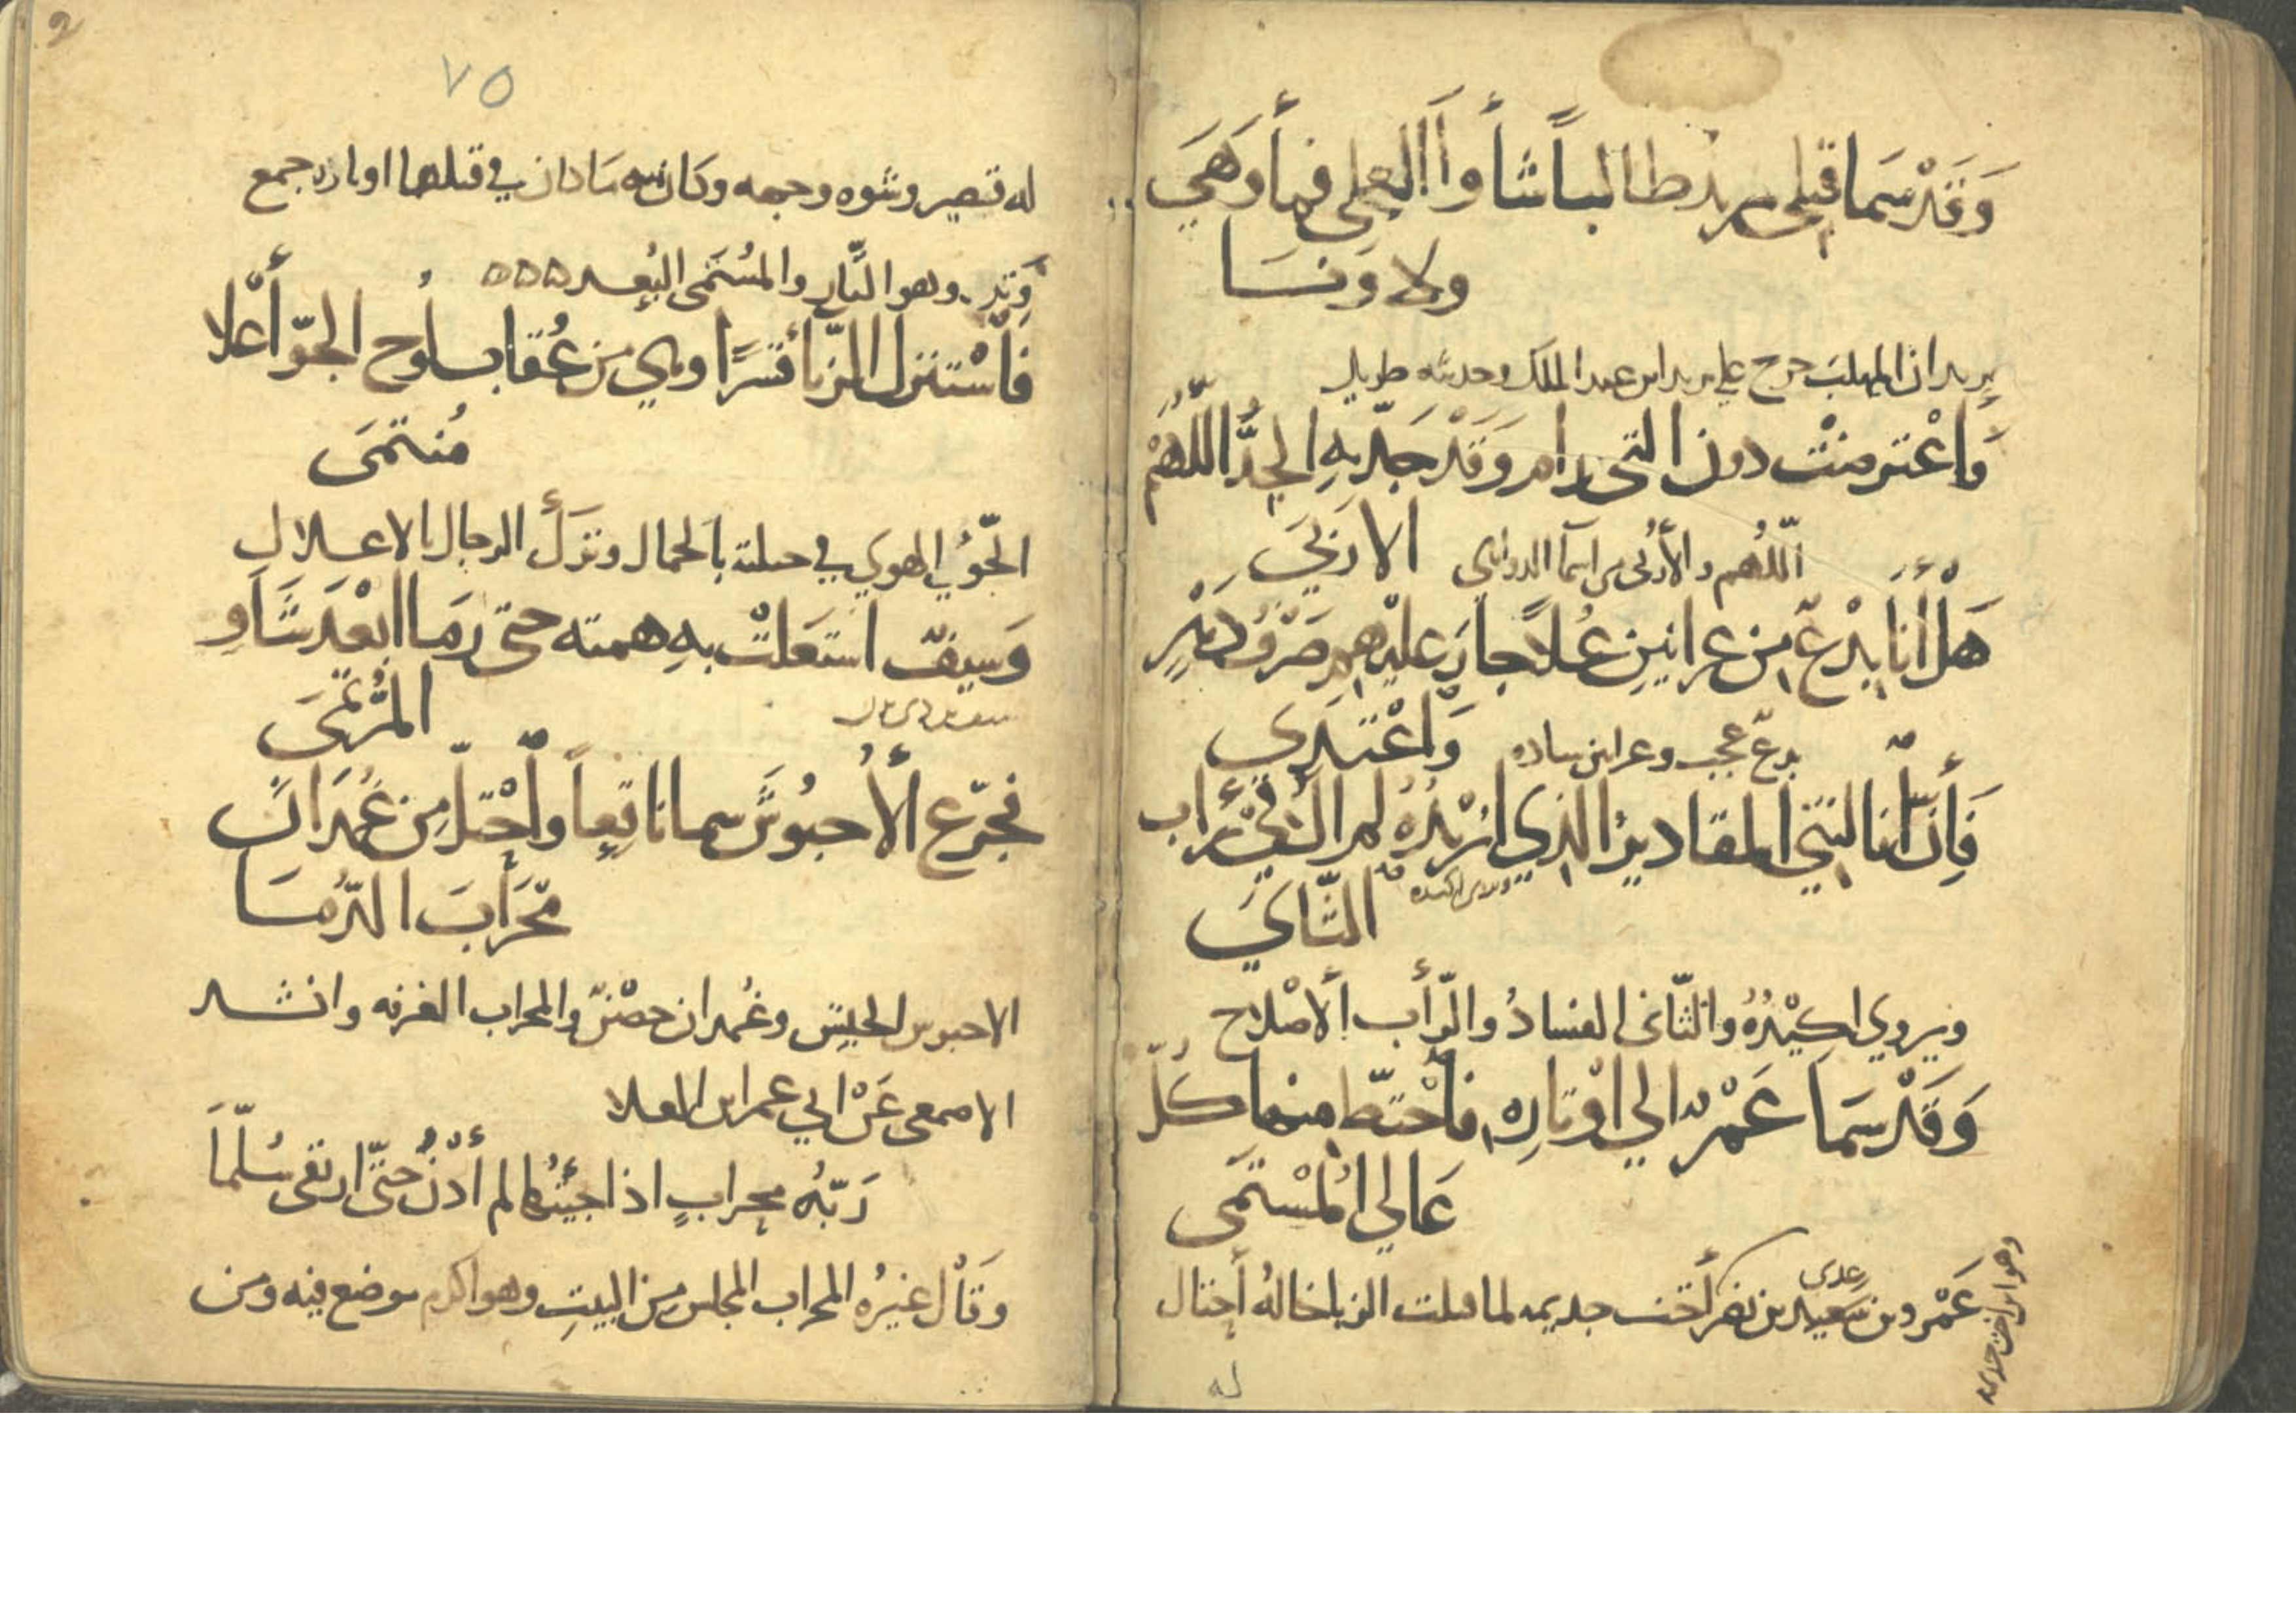 وَقَدْ سَمَا قبلي يزيد طالباً شأوا العلى فما وَهَي
ولا وَنَسَا
يزيد ابن المهلب خرج على يزيد ابن عبد الملك وحديثه طويل
وَاعْترضتْ دون التي رام وَقَدْ جَدّ بهِ الجِدُّ اللُّهَيْمُ
الارَبَيَ
اللُّهيم والأُرَبى من اسما الدواهي
هَلْ أنَا بِدْعٌ مِن عرانينِ عُلاً جارَ عليْهِمِ صَرْفُ دَهْرٍ
وَاعْتَدَى
بدعٌ عجب وعرانين ساده
فَإِنْ أنالتني المقاديرُ الذي اكيْدُهُ لم آلُ في رَأب
الثَّاي
ويروي اكِيْدُهُ والثّائى الفسادُ والرّأب الاصْلاح
وَقَدْ سَمَا عَمْرٌو الي اوْتارِهِ فاحْتطّ منها كُلّ
عَالي المُسْتمَى
عَمْرو بن سَعيد بن نصر أخت جذيمه لما قتلت الزبا خالهُ أحتال
عدى
وهو ابن اخت جذيمه
له
٧٥
له قصير وشوه وجهه وكان سه ما كان في قتلها اوتاره جمع
وَتِر وهو الثار والمسُتمَى البُعد ٥٥٥
فَاسْتنزل الزبّا قَسْرًا وهي من عُقاب لُوح الجوّ أعْلا
مُنتمَى
الجّوُّ الهوي في
وَسيفٌ استعَلتْ بهِ همته حتى رَمَا ابْعَد شَاوِ
المُرْتمَى
فجرّع الأُحبُوشَ سما ناقِعاً واحْتلّ مِن غُمْدَانَ
مَحْرَابَ الدُّمَا
الاحبوس الحبِيش وغُمدان حصْنٌ والمحراب الغرفه وانشد
الاصمعى عَنْ ابي عمر ابن العلا
رَبّهُ محرابٍ اذا جئتُها لم أدْنُ حتّى ارتقى سُلّمَا
وَقاْل غيرُه المحراب المجلس مِن البيتِ وهو اكرم موضع فيه ومن